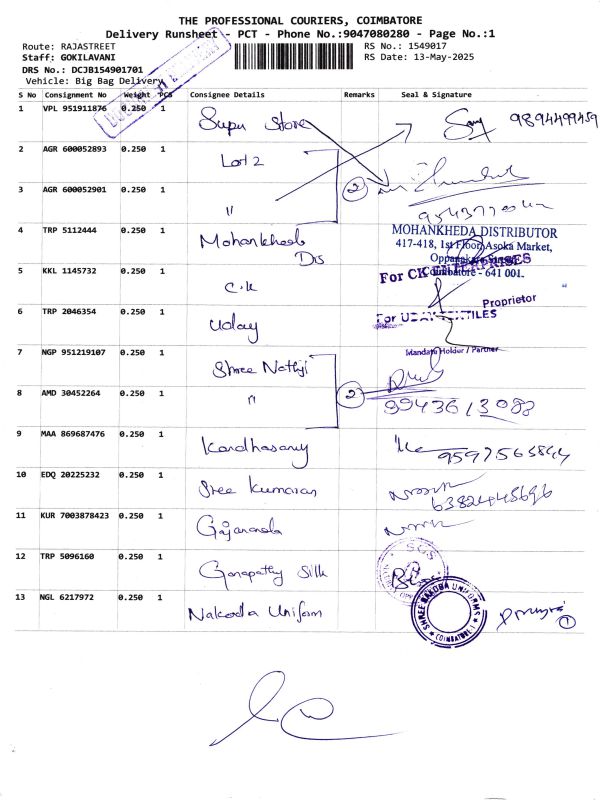 THE PROFESSIONAL COURIERS, COIMBATORE
Delivery Runsheet - PCT - Phone No.:9047080280 - Page No.:1
Route: RAJASTREET RS No.: 1549017
Staff: GOKILAVANI RS Date: 13-May-2025
DRS No.: DCJB154901701
Vehicle: Big Bag Delivery
S No Consignment No Weight PCS Consignee Details Remarks Seal & Signature
1 VPL 951911876 0.250 1 Super Store 9894499459
2 AGR 600052893 0.250 1 Lot 2
3 AGR 600052901 0.250 1 " 2
4 TRP 5112444 0.250 1 Mohankheda Dis
MOHANKHEDA DISTRIBUTOR
417-418, 1st Floor, Asoka Market,
Coimbatore - 641 001.
5 KKL 1145732 0.250 1 C.K For CK ENTERPRISES
Proprietor
6 TRP 2046354 0.250 1 Uday For UDAY TEXTILES
Mandate Holder / Partner
7 NGP 951219107 0.250 1 Shree Nathji
8 AMD 30452264 0.250 1 " 2 9943613088
9 MAA 869687476 0.250 1 Kandhasamy
10 EDQ 20225232 0.250 1 Sree Kumaran
11 KUR 7003878423 0.250 1
12 TRP 5096160 0.250 1 Ganapathy Silk SGS
13 NGL 6217972 0.250 1 Nakoda Uniform SHREE NAKODA UNIFORMS COIMBATORE-1 1